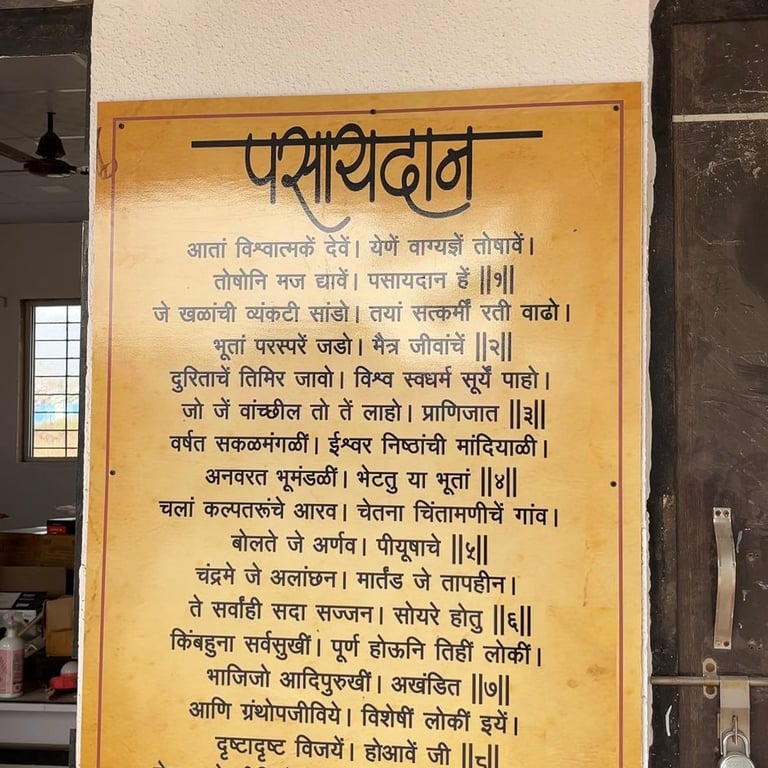 पसायदान
आतां विश्वात्मकें देवें। येणें वाग्यज्ञें तोषावें।
तोषोनि मज द्यावें। पसायदान हें ||१||
जे खळांची व्यंकटी सांडो। तयां सत्कर्मीं रती वाढो।
भूतां परस्परें जडो। मैत्र जीवांचें ||२||
दुरिताचें तिमिर जावो। विश्व स्वधर्म सूर्यें पाहो।
जो जें वांच्छील तो तें लाहो। प्राणिजात ||३||
वर्षत सकळमंगळीं। ईश्वर निष्ठांची मांदियाळी।
अनवरत भूमंडळीं। भेटतु या भूतां ||४||
चलां कल्पतरूंचे आरव। चेतना चिंतामणीचें गांव।
बोलते जे अर्णव। पीयूषाचे ||५||
चंद्रमे जे अलांछन। मार्तंड जे तापहीन।
ते सर्वांही सदा सज्जन। सोयरे होतु ||६||
किंबहुना सर्वसुखीं। पूर्ण होऊनि तिहीं लोकीं।
भाजिजो आदिपुरुखीं। अखंडित ||७||
आणि ग्रंथोपजीविये। विशेषीं लोकीं इयें।
दृष्टादृष्ट विजयें। होआवें जी ||८||